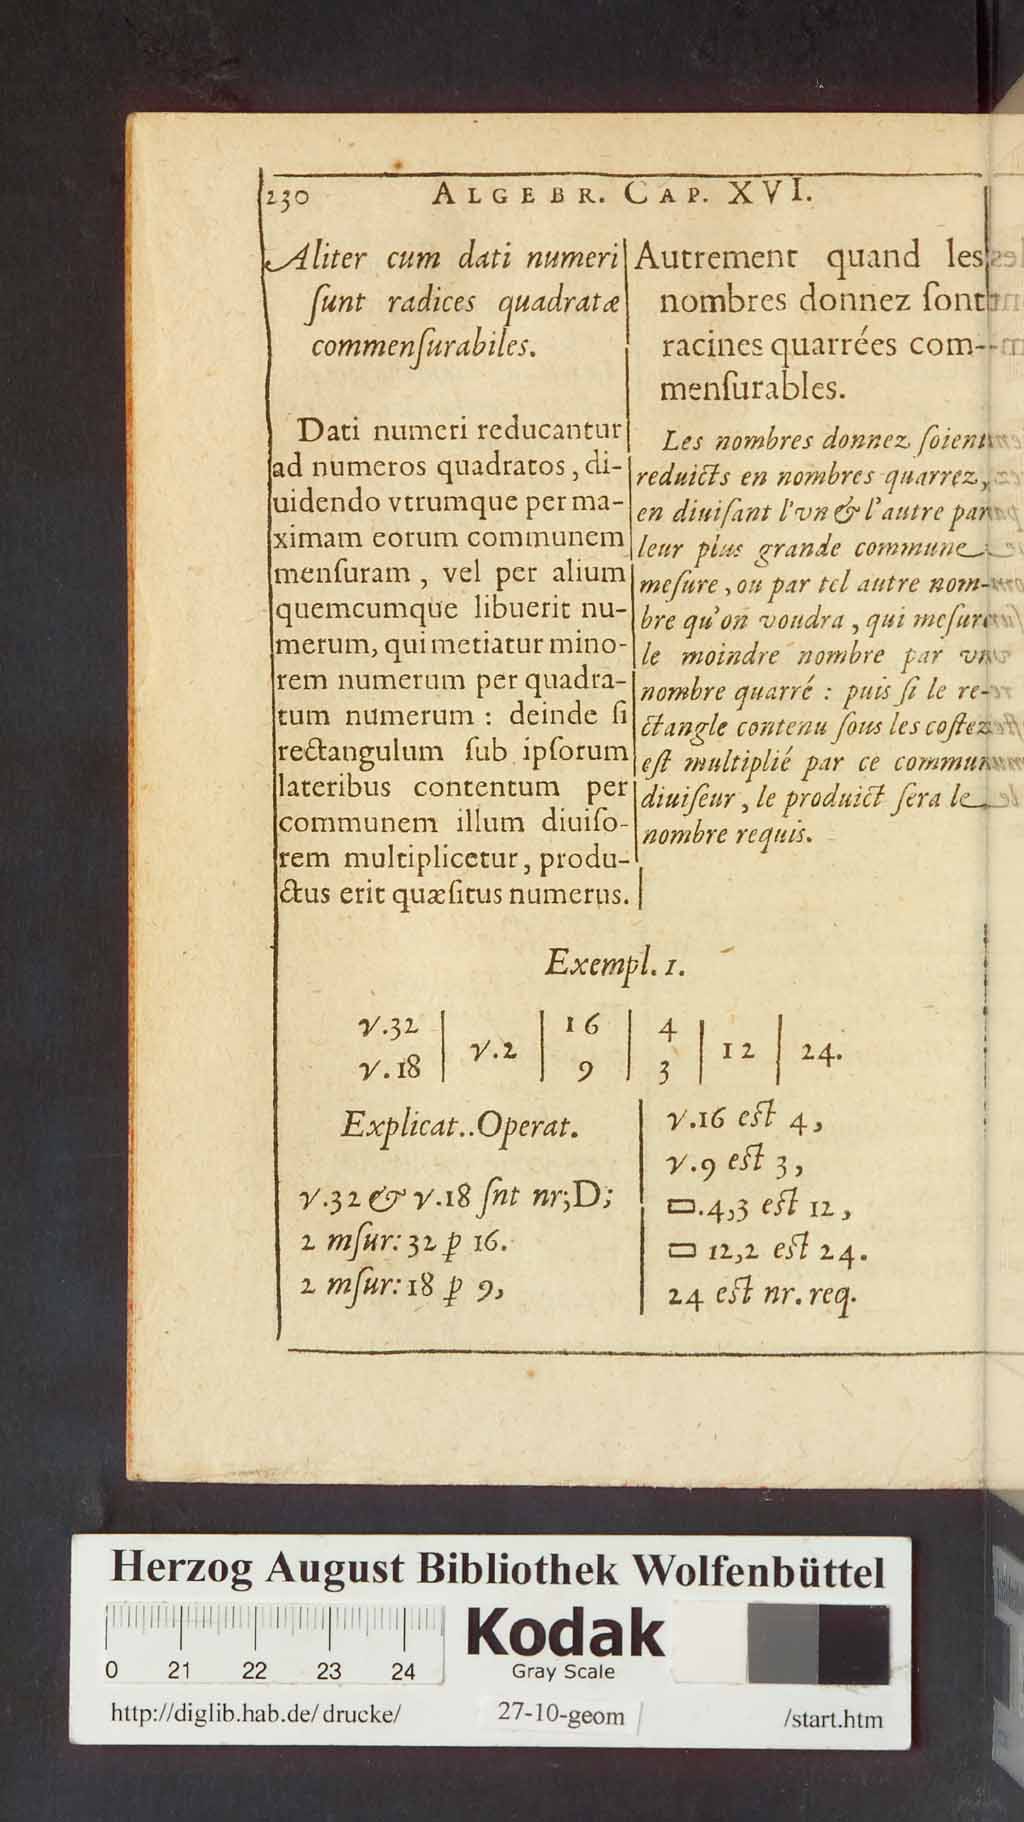 230 ALGEBR. CAP. XVI.
Aliter cum dati numeri
ſunt radices quadratæ
commenſurabiles.
Dati numeri reducantur
ad numeros quadratos, di-
uidendo vtrumque per ma-
ximam eorum communem
menſuram, vel per alium
quemcumque libuerit nu-
merum, qui metiatur mino-
rem numerum per quadra-
tum numerum : deinde ſi
rectangulum ſub ipſorum
lateribus contentum per
communem illum diuiſo-
rem multiplicetur, produ-
ctus erit quæſitus numerus.
Autrement quand les
nombres donnez ſont
racines quarrées com-
menſurables.
Les nombres donnez ſoient
reduicts en nombres quarrez,
en diuiſant l'vn & l'autre par
leur plus grande commune
meſure, ou par tel autre nom-
bre qu'on voudra, qui meſure
le moindre nombre par vn
nombre quarré : puis ſi le re-
ctangle contenu ſous les coſtez
eſt multiplié par ce commun
diuiſeur, le produict ſera le
nombre requis.
Exempl. 1.
√.32 | √.2 | 16 | 4 | 12 | 24.
√.18 9 3
Explicat..Operat.
√.32 & √.18 ſnt nr;D;
2 mſur: 32 ꝑ 16.
2 mſur: 18 ꝑ 9,
√.16 eſt 4,
√.9 eſt 3,
▭.4,3 eſt 12,
▭ 12,2 eſt 24.
24 eſt nr. req.
Herzog August Bibliothek Wolfenbüttel
Kodak
Gray Scale
0 21 22 23 24
http://diglib.hab.de/drucke/ 27-10-geom /start.htm